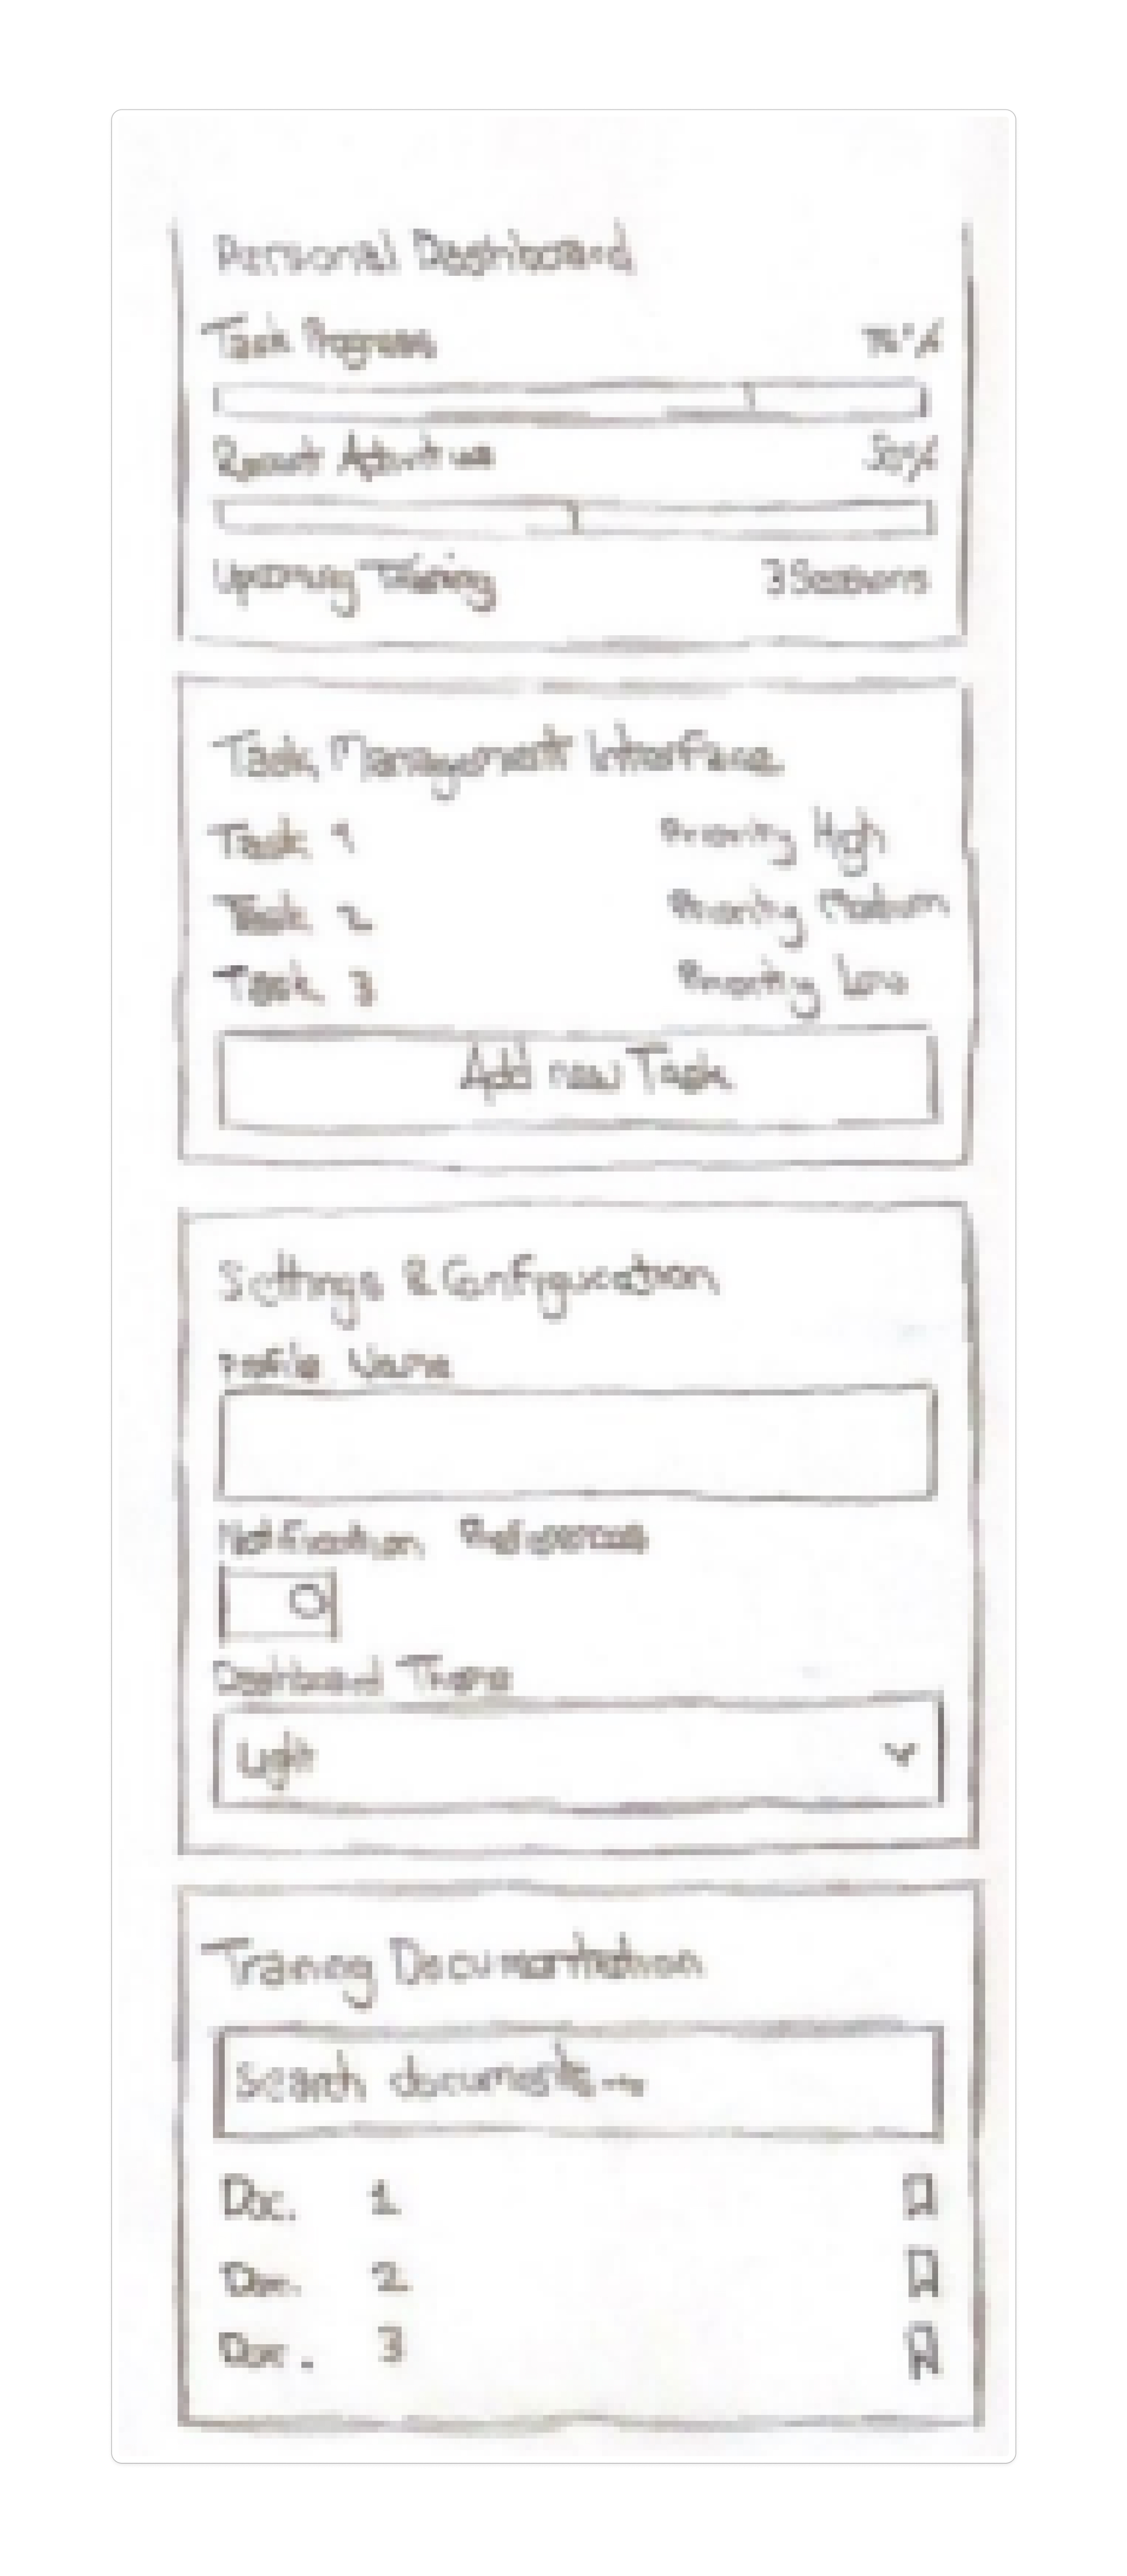 Personal Dashboard
Task Progress
Recent Activities 50%
Upcoming Training 3 Sessions
Task Management Interface
Task 1 Priority High
Task 2 Priority Medium
Task 3 Priority Low
Add new Task
Settings & Configuration
Profile Name
Notification Preferences
Dashboard Theme
Light
Training Documentation
Search documents...
Doc. 1
Doc. 2
Doc. 3